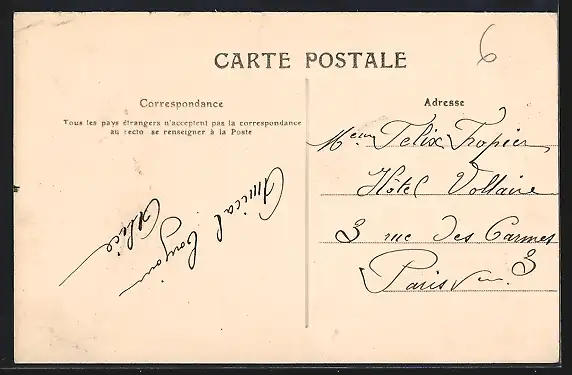 6
CARTE POSTALE
Correspondance
Tous les pays étrangers n'acceptent pas la correspondance
au recto se renseigner à la Poste
Amical bonjour
Alice
Adresse
Mr Felix Tropier
Hôtel Voltaire
3 rue des Carmes
Paris Vème 3